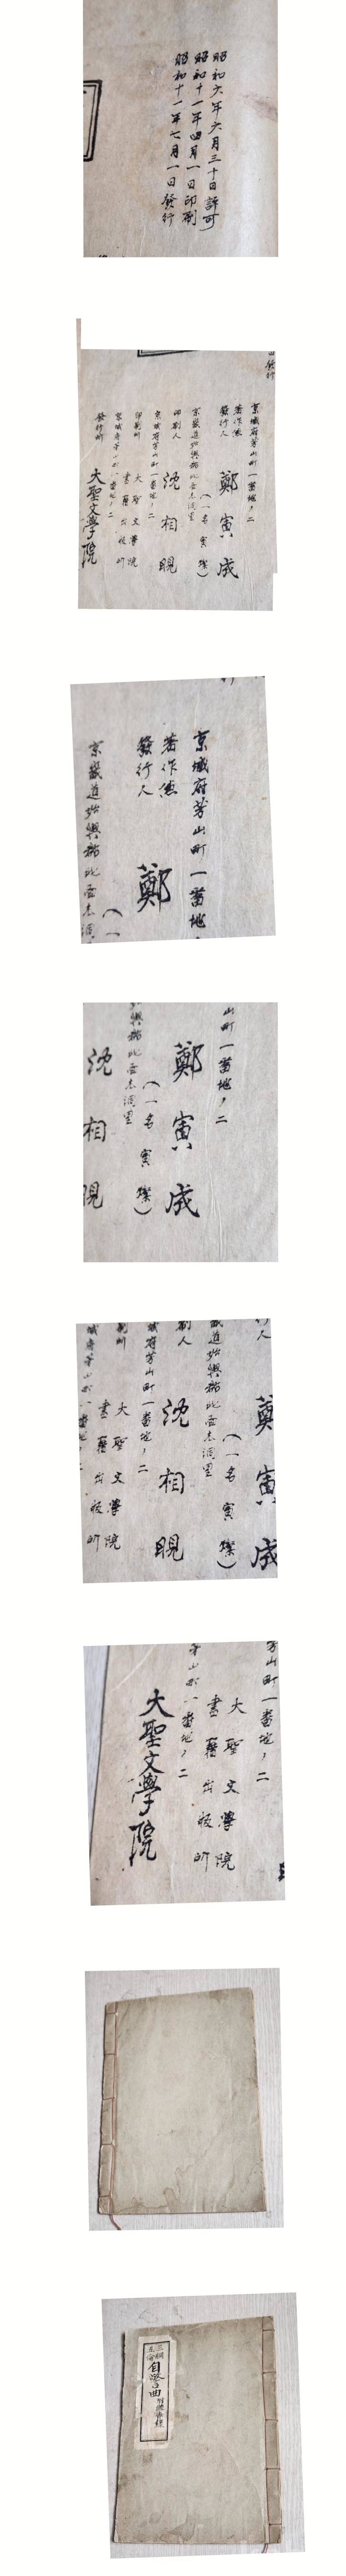 昭和六年六月三十日許可
昭和十一年四月一日印刷
昭和十一年七月一日發行
日發行
京城府芳山町一番地ノ二
著作兼
發行人
鄭寅成
(一名寅燦)
印刷人
沈相晛
京城府芳山町一番地ノ二
印刷所
大聖文學院
書籍出版所
京城府芳山町一番地ノ二
發行所
大聖文學院
京城府芳山町一番地ノ
著作兼
發行人
鄭
山町一番地ノ二
鄭寅成
(一名寅燦)
沈相晛
行人
鄭寅成
(一名寅燦)
刷人
沈相晛
城府芳山町一番地ノ二
刷所
大聖文學院
書籍出版所
芳山町一番地ノ二
大聖文學院
書籍出版所
芳山町一番地ノ二
大聖文學院
三綱
五倫
自警曲